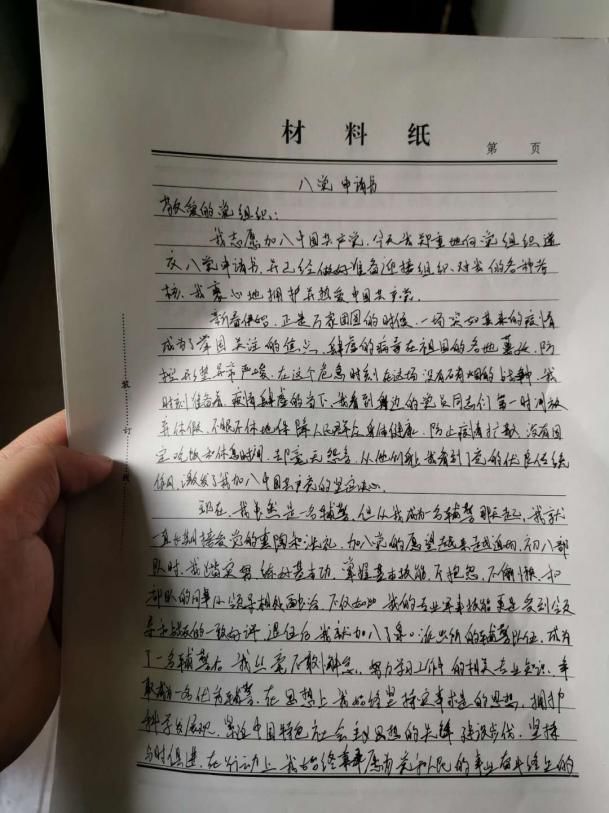 材料纸
第 页
入党申请书
敬爱的党组织:
我志愿加入中国共产党,今天我郑重地向党组织递
交入党申请书,并已经做好准备迎接组织、对我的各种考
核,我衷心地拥护并热爱中国共产党。
新春伊始,正是万家团圆的时候,一场突如其来的疫情
成为了举国关注的焦点,肆虐的病毒在祖国的各地蔓延,防
控形势异常严峻,在这个危急时刻在这场没有硝烟的战斗,我
时刻准备着,疫情肆虐的当下,我看到身边的党员同志们第一时间放
弃休假,不眠不休地保障人民群众身体健康,防止疫情扩散,没有固
定吃饭和休息时间,却毫无怨言,从他们身上我看到了党的优良传统
作风,激发了我加入中国共产党的坚定决心。
现在,我虽然是一名辅警,但从我成为一名辅警那天起,我就
一直接受党的熏陶和洗礼,加入党的愿望越来越迫切,初入部
队时,我踏实努力练好基本功,掌握基本技能,不抱怨,不偷懒,和
部队的同事以及领导相处融洽,不仅如此,我的专业军事技能更是受到
领导与战友的一致好评,退伍后我就加入了派出所的辅警队伍,成为
了一名辅警后,我丝毫不敢懈怠,努力学习工作中的相关专业知识,争
取成为一名优秀辅警,在思想上我始终坚持实事求是的思想,拥护
科学发展观,紧跟中国特色社会主义思想的先锋建设步伐,坚持
与时俱进,在行动上我始终秉承愿为党和人民的事业奋斗终生的
装
订
线